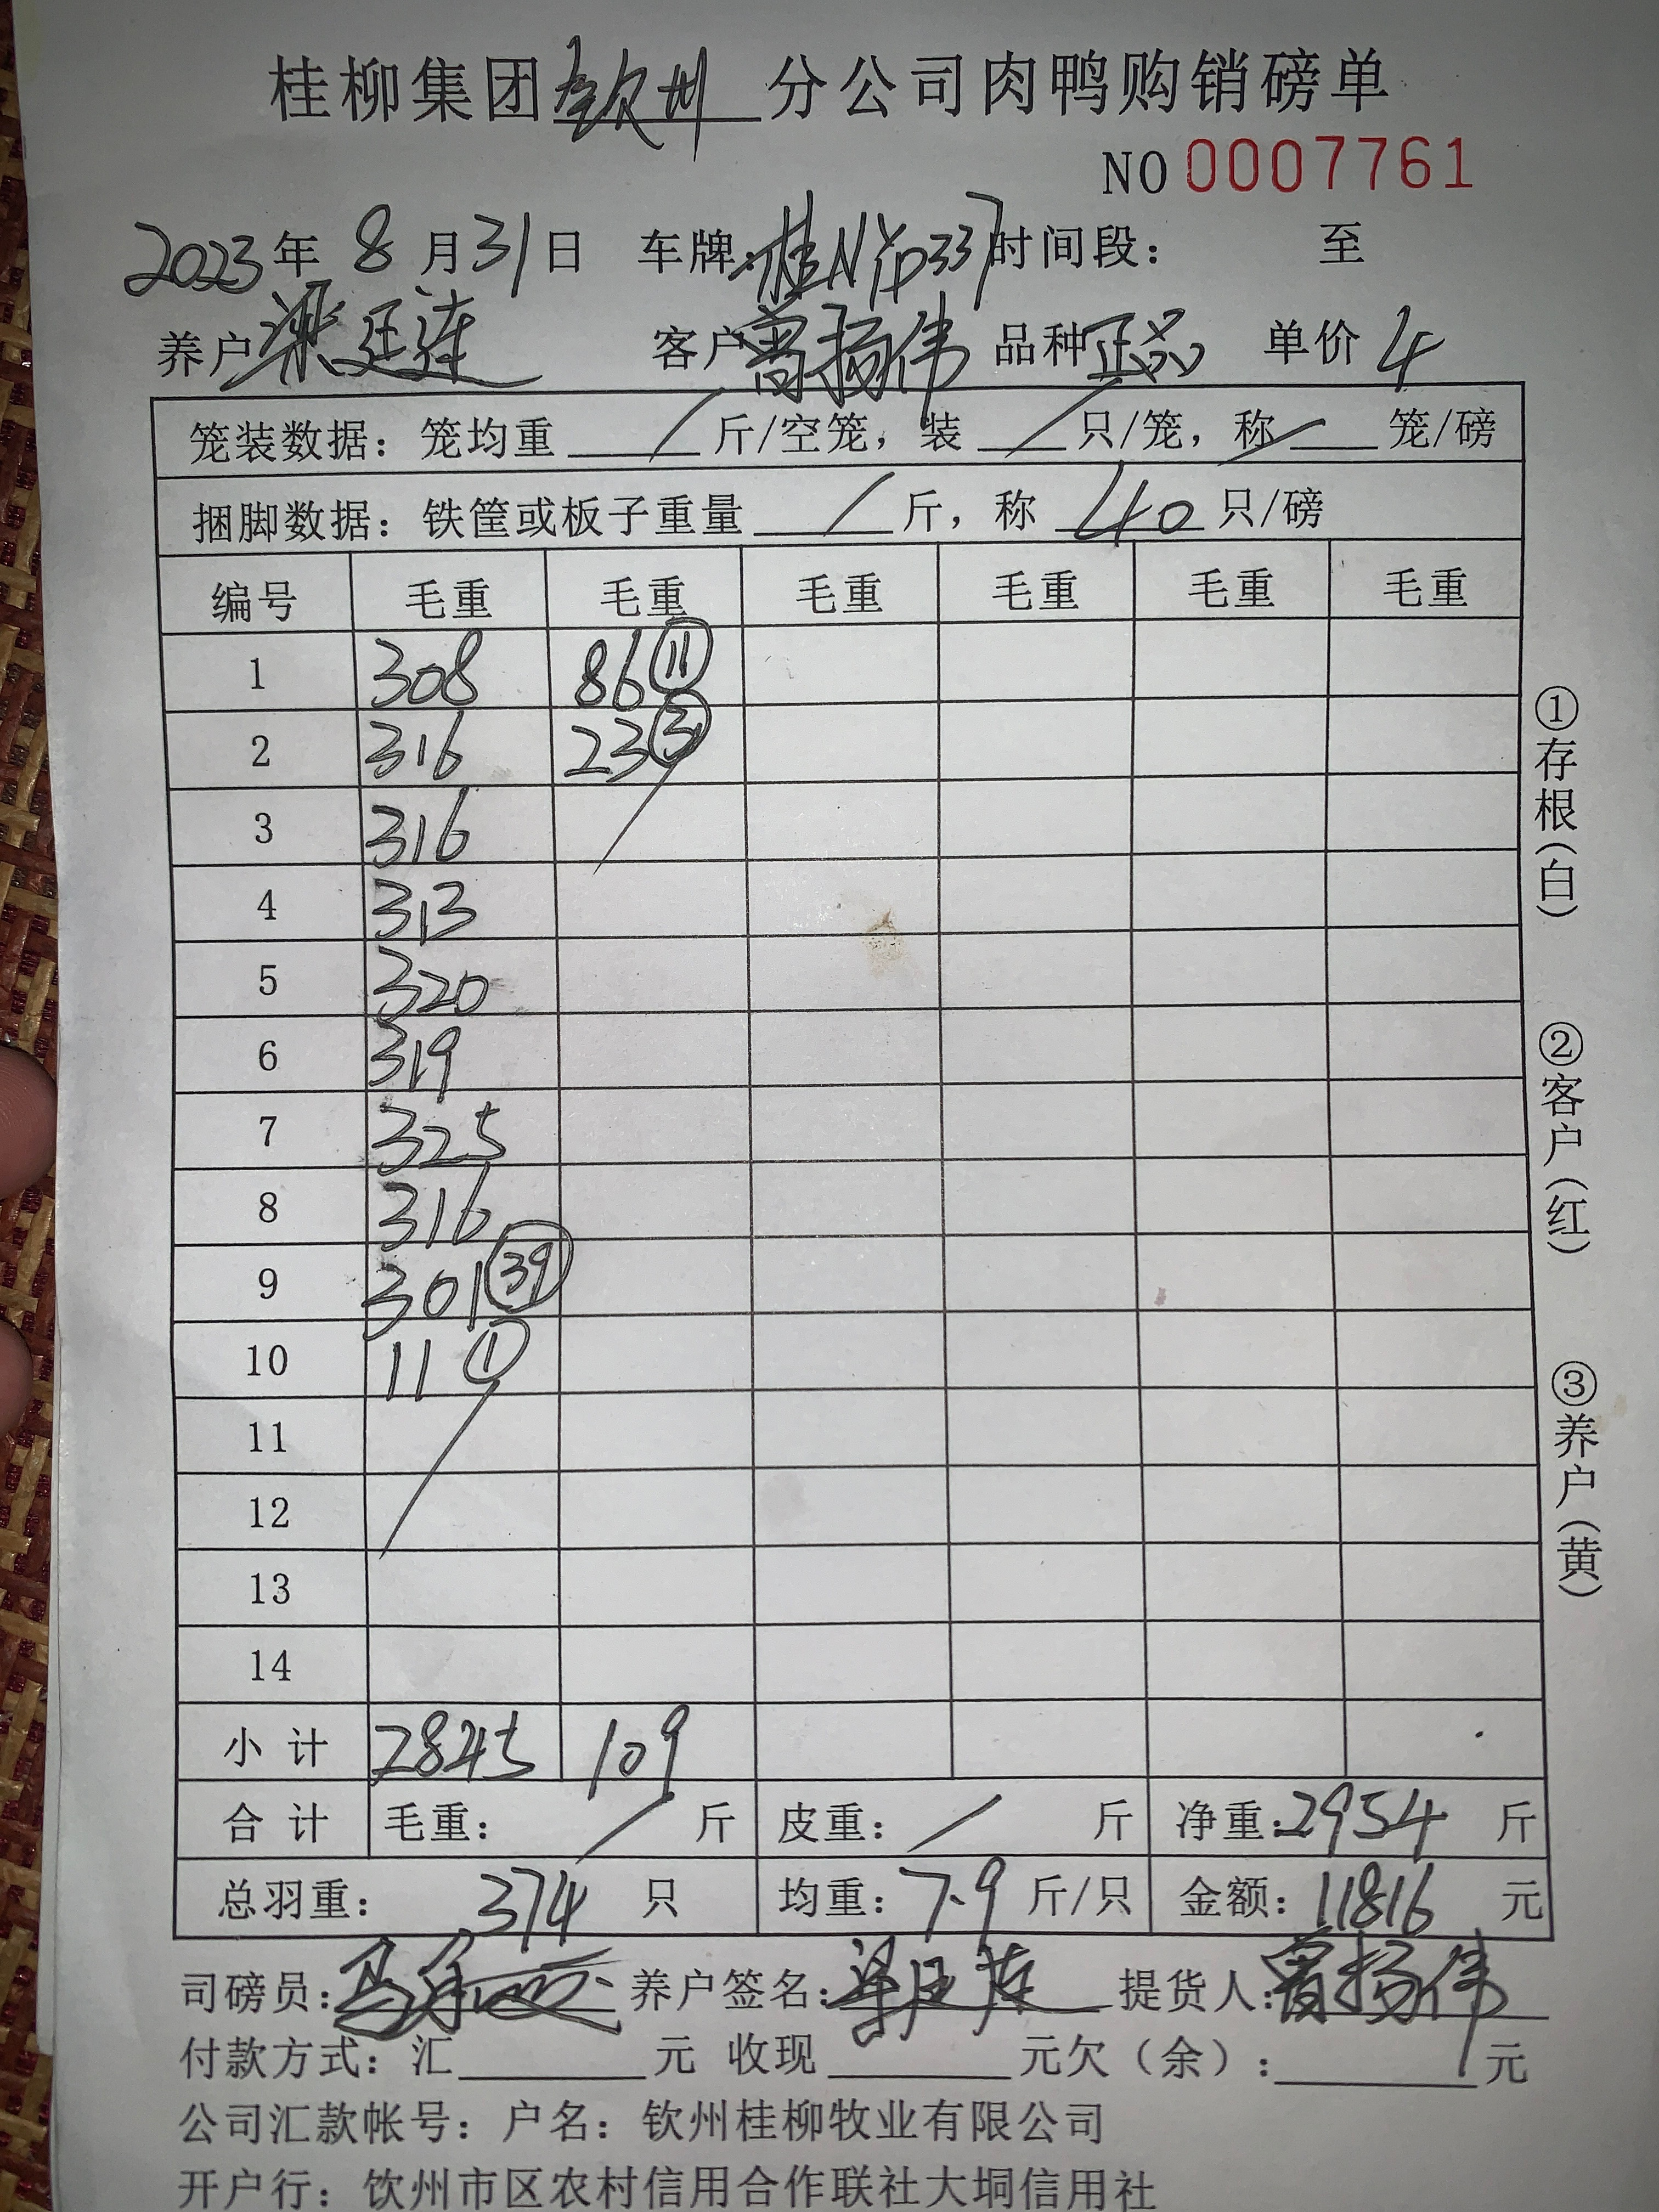 桂柳集团钦州分公司肉鸭购销磅单
NO 0007761
2023年8月31日 车牌:桂NYP337 时间段: 至
养户 梁廷莲 客户 曾扬伟 品种 正品 单价 4
笼装数据:笼均重 / 斤/空笼,装 / 只/笼,称 / 笼/磅
捆脚数据:铁筐或板子重量 / 斤,称 40 只/磅
编号 毛重 毛重 毛重 毛重 毛重 毛重
1 308 86 ⑪
2 316 23 ③
3 316
4 313
5 320
6 319
7 325
8 316
9 301 ㊴
10 11 ①
11
12
13
14
小计 2845 109
合计 毛重: / 斤 皮重: / 斤 净重:2954 斤
总羽重: 374 只 均重:7.9 斤/只 金额:11816 元
司磅员: 养户签名:梁廷莲 提货人:曾扬伟
付款方式:汇 元 收现 元欠(余): 元
公司汇款帐号:户名:钦州桂柳牧业有限公司
开户行:钦州市区农村信用合作联社大垌信用社
①存根(白)
②客户(红)
③养户(黄)